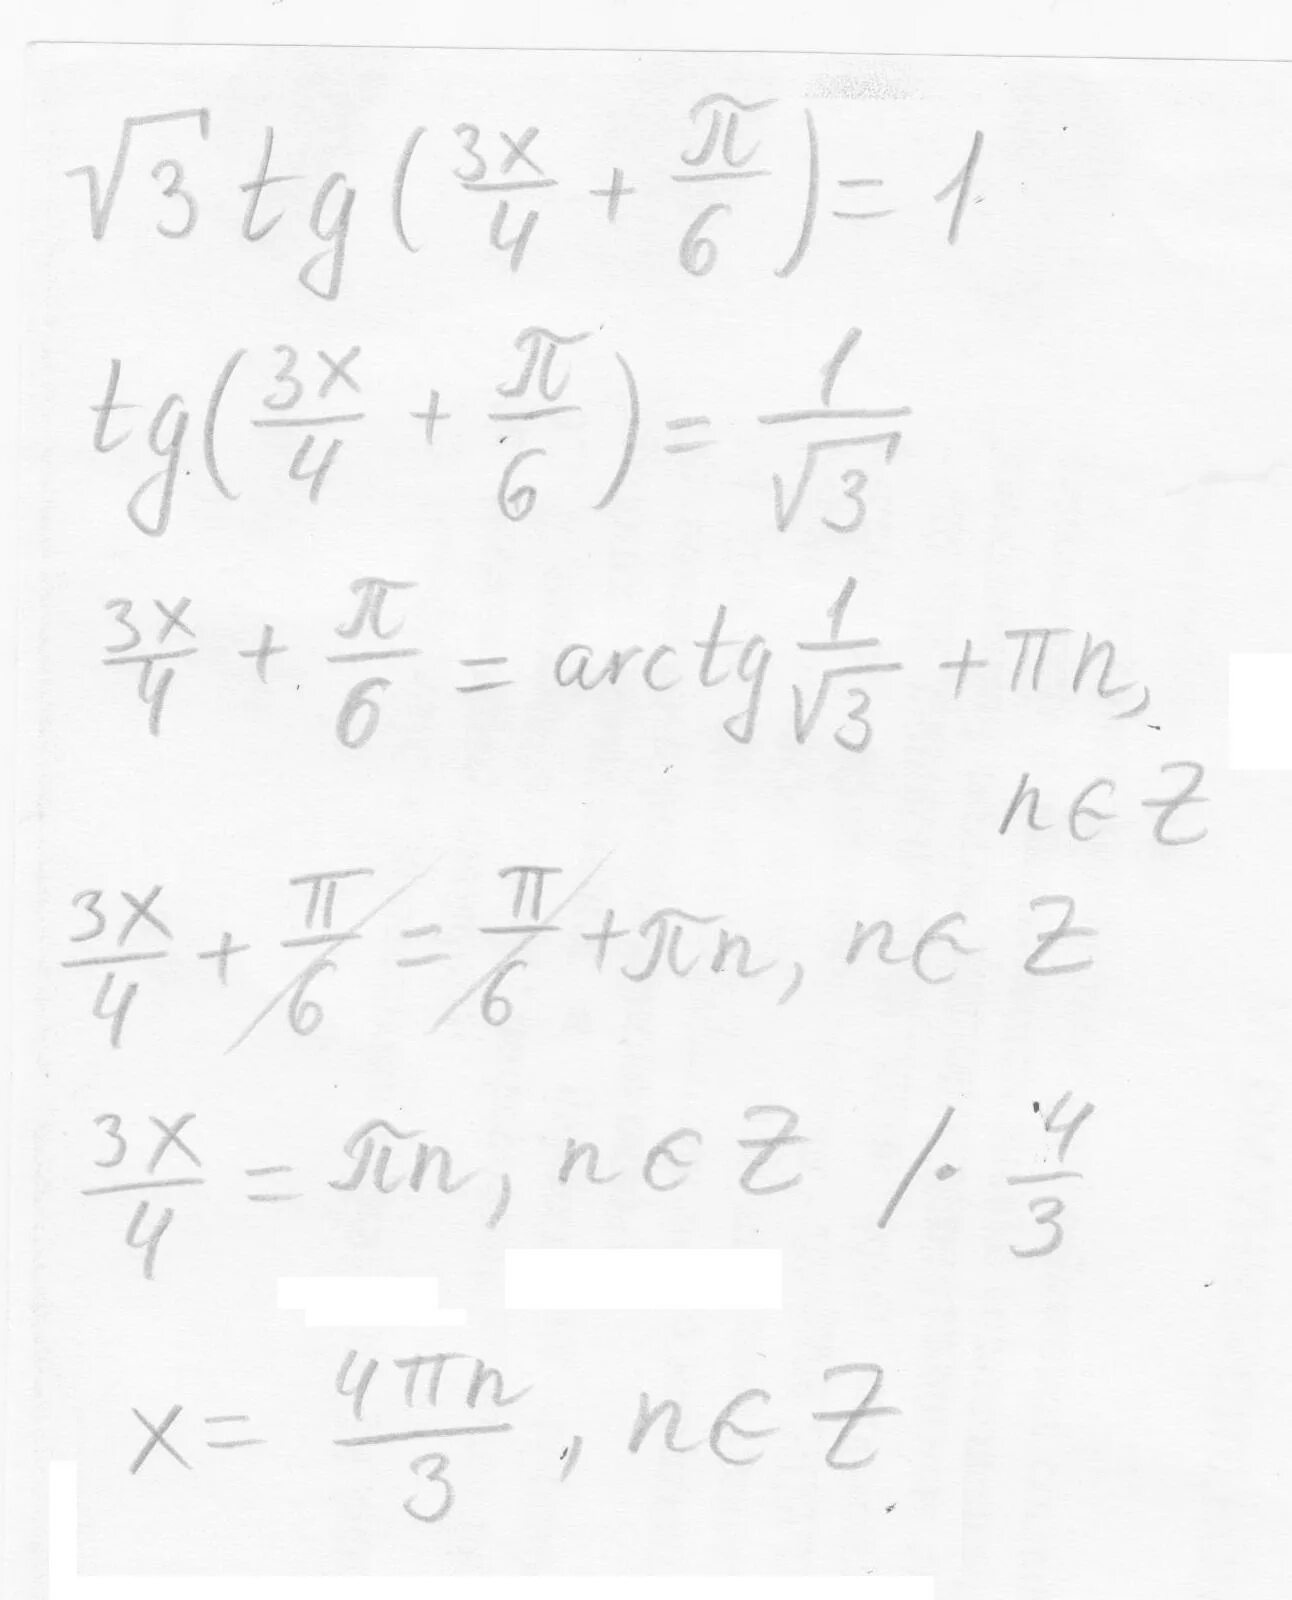 √3 tg(3x/4 + π/6) = 1
tg(3x/4 + π/6) = 1/√3
3x/4 + π/6 = arctg 1/√3 + πn,
n ∈ Z
3x/4 + π/6 = π/6 + πn, n ∈ Z
3x/4 = πn, n ∈ Z / · 4/3
x = 4πn/3, n ∈ Z